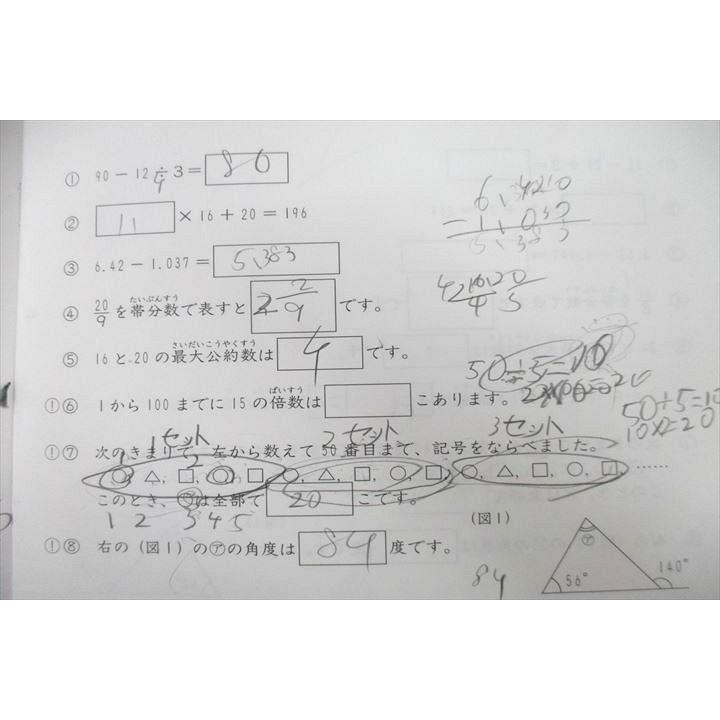 ① 90－12÷3＝ 80
4
② 11 ×16＋20＝196
③ 6.42－1.037＝ 5.383
④ 20/9 を帯分数で表すと 2 2/9 です。
たいぶんすう
⑤ 16と20の最大公約数は 4 です。
さいだいこうやくすう
①⑥ 1から100までに15の倍数は こあります。
ばいすう
50÷5=10
50÷5=10
10×2=20
1セット 2セット 3セット
①⑦ 次のきまりで、左から数えて50番目まで、記号をならべました。
○, △, □, ○, □, ○, △, □, ○, □, ○, △, □, ○, □, ……
このとき、○は全部で 20 こです。
1 2 3 4 5
(図1)
①⑧ 右の(図1)の㋐の角度は 84 度です。
84
㋐
56°
140°